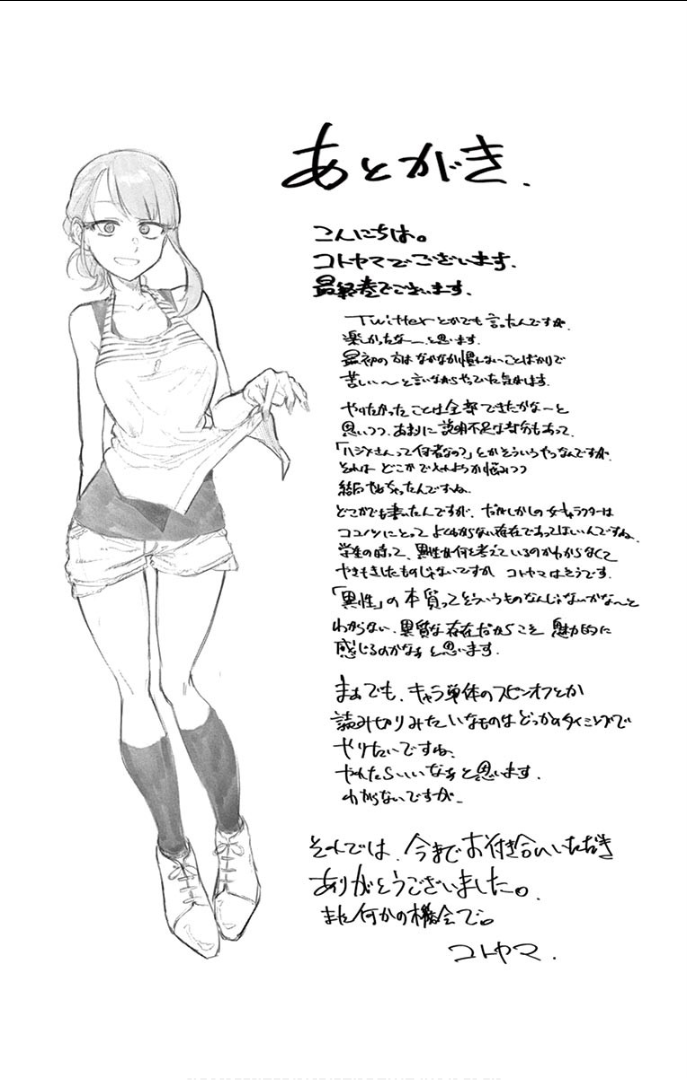 あとがき.
こんにちは。
コトヤマでございます.
最終巻でございます.
Twitterとかでも言ったんですが.
楽しかったな〜と思います.
最初の方はなかなか慣れないことばかりで
苦しい〜と言いながらやっていた気がします.
やりたかったことは全部できたかな〜と
思いつつ、あまりに説明不足な部分もあって.
「ハジメさんって何者なの?」とかそういうやつなんですが.
それは どこかでやれようか悩みつつ
結局 ちゃったんですね.
どこかでも書いたんですが、だがしかしの女キャラクターは
ココノツにとって よくわからない存在であってほしいんですね.
学生の時って、異性が何を考えているのかわからなくて
やきもきしたものじゃないですか コトヤマはそうです.
「異性」の本質ってそういうものなんじゃないかな〜と
わからない、異質な存在だからこそ 魅力的に
感じるのかなぁと思います.
まぁでも、キャラ単体のスピンオフとか
読み切りみたいなものはどっかのタイミングで
やりたいですね.
やれたらいいなぁと思います.
わからないですが.
それでは、今までお付き合いいただき
ありがとうございました。
また何かの機会で。
コトヤマ.